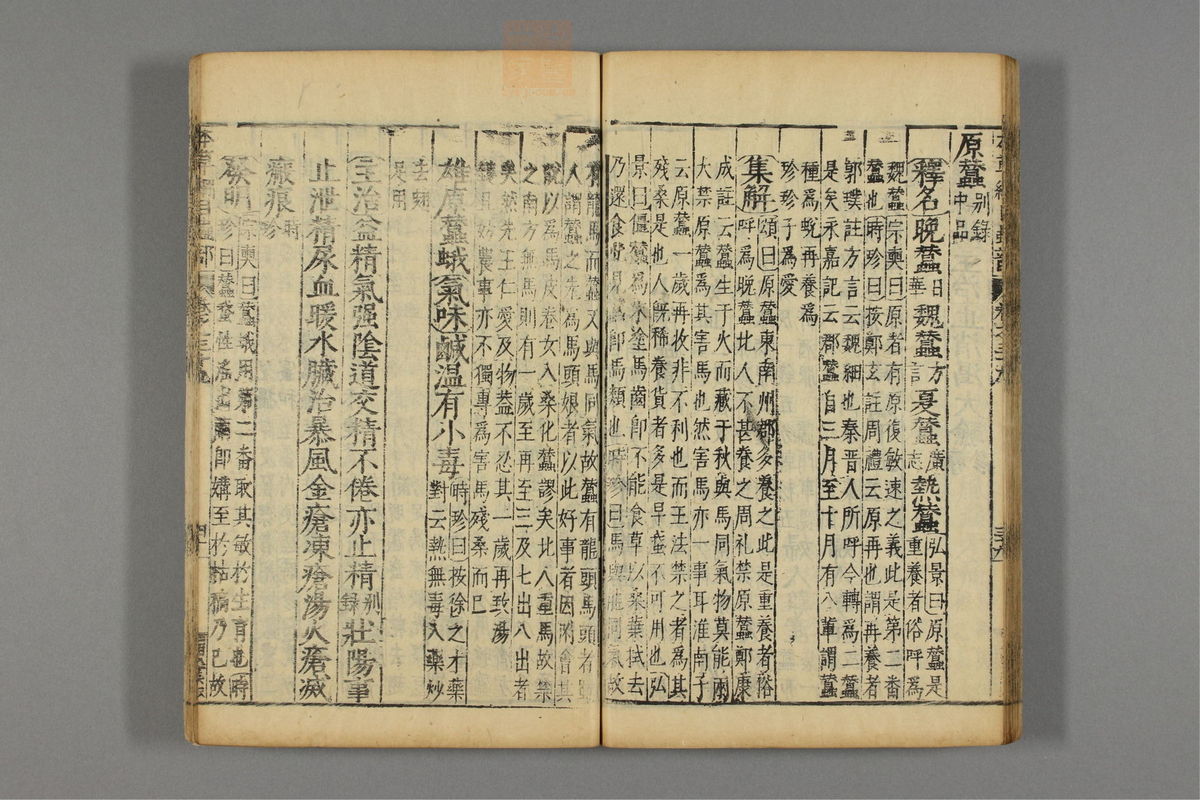 原蠶別錄中品
釋名晚蠶日華魏蠶方言夏蠶廣志熱蠶弘景曰原蠶是重養者俗呼為
魏蠶宗奭曰原者有原復敏速之義此是第二番
蠶也時珍曰按鄭玄註周禮云原再也謂再養者
郭璞註方言云魏細也秦晉人所呼今轉為二蠶
是矣永嘉記云郡蠶自三月至十月有八輩謂蠶
種為蚖再養為
珍珍子為愛
集解頌曰原蠶東南州郡多養之此是重養者俗
呼為晚蠶北人不甚養之周礼禁原蠶鄭康
成註云蠶生于火而藏于秋與馬同氣物莫能兩
大禁原蠶為其害馬也然害馬亦一事耳淮南子
云原蠶一歲再收非不利也而王法禁之者為其
殘桑是也人既稀養貨者多是早蛾不可用也弘
景曰僵蠶為末塗馬齒即不能食草以桑葉拭去
乃還食此見蠶即馬類也時珍曰馬與龍同氣故
有龍馬而蠶又與馬同氣故蠶有龍頭馬頭者
人謂蠶之先為馬頭娘者以此好事者因附會其
說以為馬皮卷女入桑化蠶謬矣北人重馬故禁
之南方無馬則有一歲至再至三及七出八出者
矣然先王仁愛及物蓋不忍其一歲再致湯
鑊且妨農事亦不獨專為害馬殘桑而已
雄原蠶蛾氣味鹹溫有小毒時珍曰按徐之才藥對云熱無毒入藥炒
去翅足用
主治益精氣强陰道交精不倦亦止精別錄壯陽事
止泄精尿血暖水臟治暴風金瘡凍瘡湯火瘡滅
瘢痕時珍
發明宗奭曰蠶蛾用第二番取其敏於生育也時
珍曰蠶蛾性淫出繭即媾至於枯槁乃已故